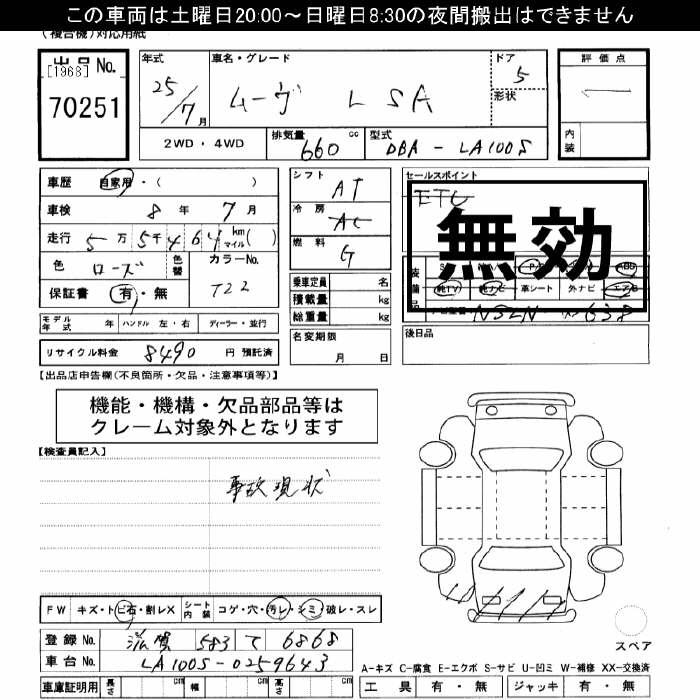 この車両は土曜日20:00～日曜日8:30の夜間搬出はできません
(複合機)対応用紙
出品No.
[1968]
70251
年式
25/7月
車名・グレード
ムーヴ L SA
ドア
5
形状
評価点
内装
2WD・4WD
排気量
660 cc
型式
DBA-LA100S
車歴 自家用・( )
車検 8年 7月
走行 5万5千464 km マイル( )
色 ローズ 色替
カラーNo.
T22
保証書 有・無
モデル年式 年 ハンドル 左・右 ディーラー・並行
リサイクル料金 8490 円 預託済
シフト AT
冷房 AC
燃料 G
乗車定員 名
積載量 kg
総重量 kg
名変期限
月 日
セールスポイント
ETC
無効
純TV 純ナビ 革シート 外ナビ エアB
後日品
【出品店申告欄(不良箇所・欠品・注意事項等)】
機能・機構・欠品部品等は
クレーム対象外となります
【検査員記入】
事故現状
FW キズ・トビ石・割レX シート内装 コゲ・穴・汚レ・シミ・破レ・スレ
登録No. 滋賀 583 て 6868
車台No. LA100S-0259643
車庫証明用 長さ cm 幅 cm 高さ cm
スペア
A-キズ C-腐食 E-エクボ S-サビ U-凹ミ W-補修 XX-交換済
工具 有・無 ジャッキ 有・無